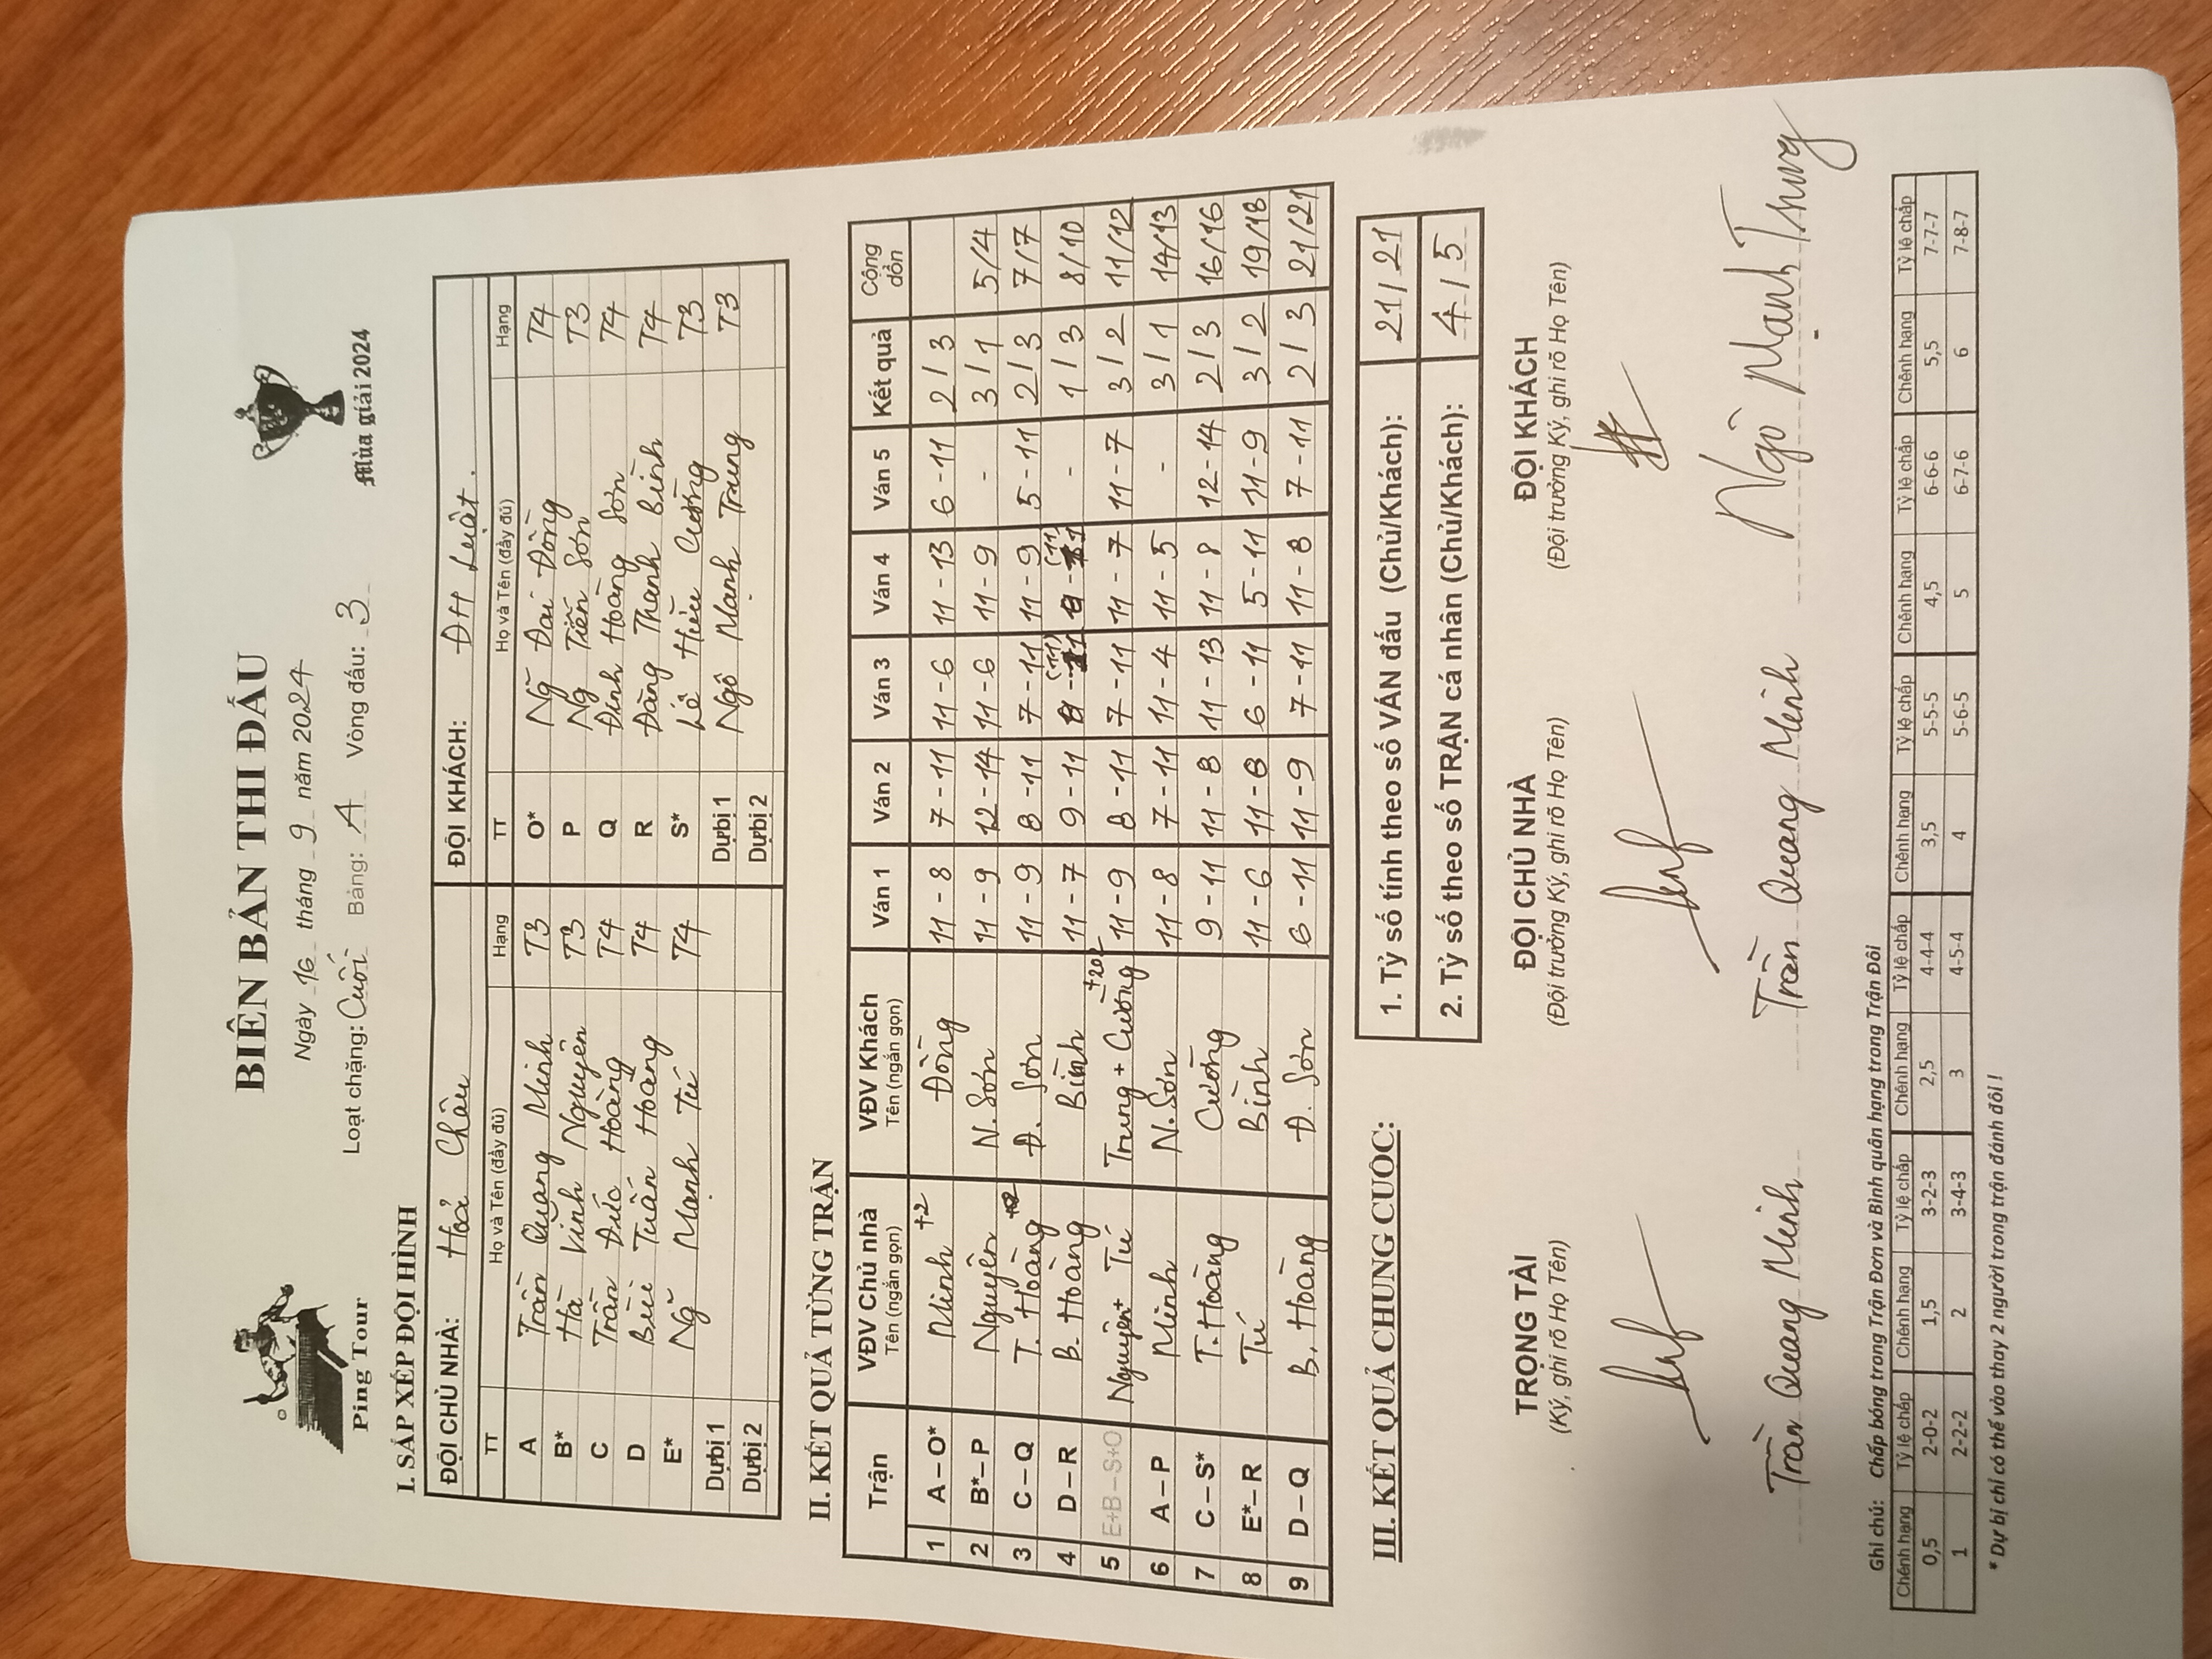 BIÊN BẢN THI ĐẤU
Ngày 16 tháng 9 năm 2024
Ping Tour
Loạt chặng: Cuối Bảng: A Vòng đấu: 3
Mùa giải 2024
I. SẮP XẾP ĐỘI HÌNH
ĐỘI CHỦ NHÀ: Hoả Châu ĐỘI KHÁCH: ĐH Luật.
TT Họ và Tên (đầy đủ) Hạng TT Họ và Tên (đầy đủ) Hạng
A Trần Quang Minh T3 O* Ng̃ Đai Đồng T4
B* Hà Vĩnh Nguyên T3 P Ng̃ Tiến Sơn T3
C Trần Đức Hoàng T4 Q Đinh Hoàng Sơn T4
D Bùi Tuấn Hoàng T4 R Đàng Thanh Bình T4
E* Ng̃ Mạnh Tú T4 S* Lê Hiếu Cường T3
Dự bị 1 Dự bị 1 Ngô Mạnh Trung T3
Dự bị 2 Dự bị 2
II. KẾT QUẢ TỪNG TRẬN
Trận VĐV Chủ nhà Tên (ngắn gọn) VĐV Khách Tên (ngắn gọn) Ván 1 Ván 2 Ván 3 Ván 4 Ván 5 Kết quả Cộng dồn
1 A – O* Minh +2 Đồng 11 - 8 7 - 11 11 - 6 11 - 13 6 - 11 2 / 3
2 B* – P Nguyên N. Sơn 11 - 9 12 - 14 11 - 6 11 - 9 - 3 / 1 5/4
3 C – Q T. Hoàng Đ. Sơn 11 - 9 8 - 11 7 - 11 11 - 9 5 - 11 2 / 3 7/7
4 D – R B. Hoàng Bình 11 - 7 9 - 11 (11) (11) - 1 / 3 8/10
5 E+B – S+O Nguyên + Tú Trung + Cường +202 11 - 9 8 - 11 7 - 11 11 - 7 11 - 7 3 / 2 11/12
6 A – P Minh N. Sơn 11 - 8 7 - 11 11 - 4 11 - 5 - 3 / 1 14/13
7 C – S* T. Hoàng Cường 9 - 11 11 - 8 11 - 13 11 - 8 12 - 14 2 / 3 16/16
8 E* – R Tú Bình 11 - 6 11 - 8 6 - 11 5 - 11 11 - 9 3 / 2 19/18
9 D – Q B. Hoàng Đ. Sơn 6 - 11 11 - 9 7 - 11 11 - 8 7 - 11 2 / 3 21/21
III. KẾT QUẢ CHUNG CUỘC:
1. Tỷ số tính theo số VÁN đấu (Chủ/Khách): 21 / 21
2. Tỷ số theo số TRẬN cá nhân (Chủ/Khách): 4 / 5
TRỌNG TÀI ĐỘI CHỦ NHÀ ĐỘI KHÁCH
(Ký, ghi rõ Họ Tên) (Đội trưởng Ký, ghi rõ Họ Tên) (Đội trưởng Ký, ghi rõ Họ Tên)
Trần Quang Minh Trần Quang Minh Ngô Mạnh Trung
Ghi chú: Chấp bóng trong Trận Đơn và Bình quân hạng trong Trận Đôi
Chênh hạng Tỷ lệ chấp Chênh hạng Tỷ lệ chấp Chênh hạng Tỷ lệ chấp Chênh hạng Tỷ lệ chấp Chênh hạng Tỷ lệ chấp Chênh hạng Tỷ lệ chấp
0,5 2-0-2 1,5 3-2-3 2,5 4-4-4 3,5 5-5-5 4,5 6-6-6 5,5 7-7-7
1 2-2-2 2 3-4-3 3 4-5-4 4 5-6-5 5 6-7-6 6 7-8-7
* Dự bị chỉ có thể vào thay 2 người trong trận đánh đôi !